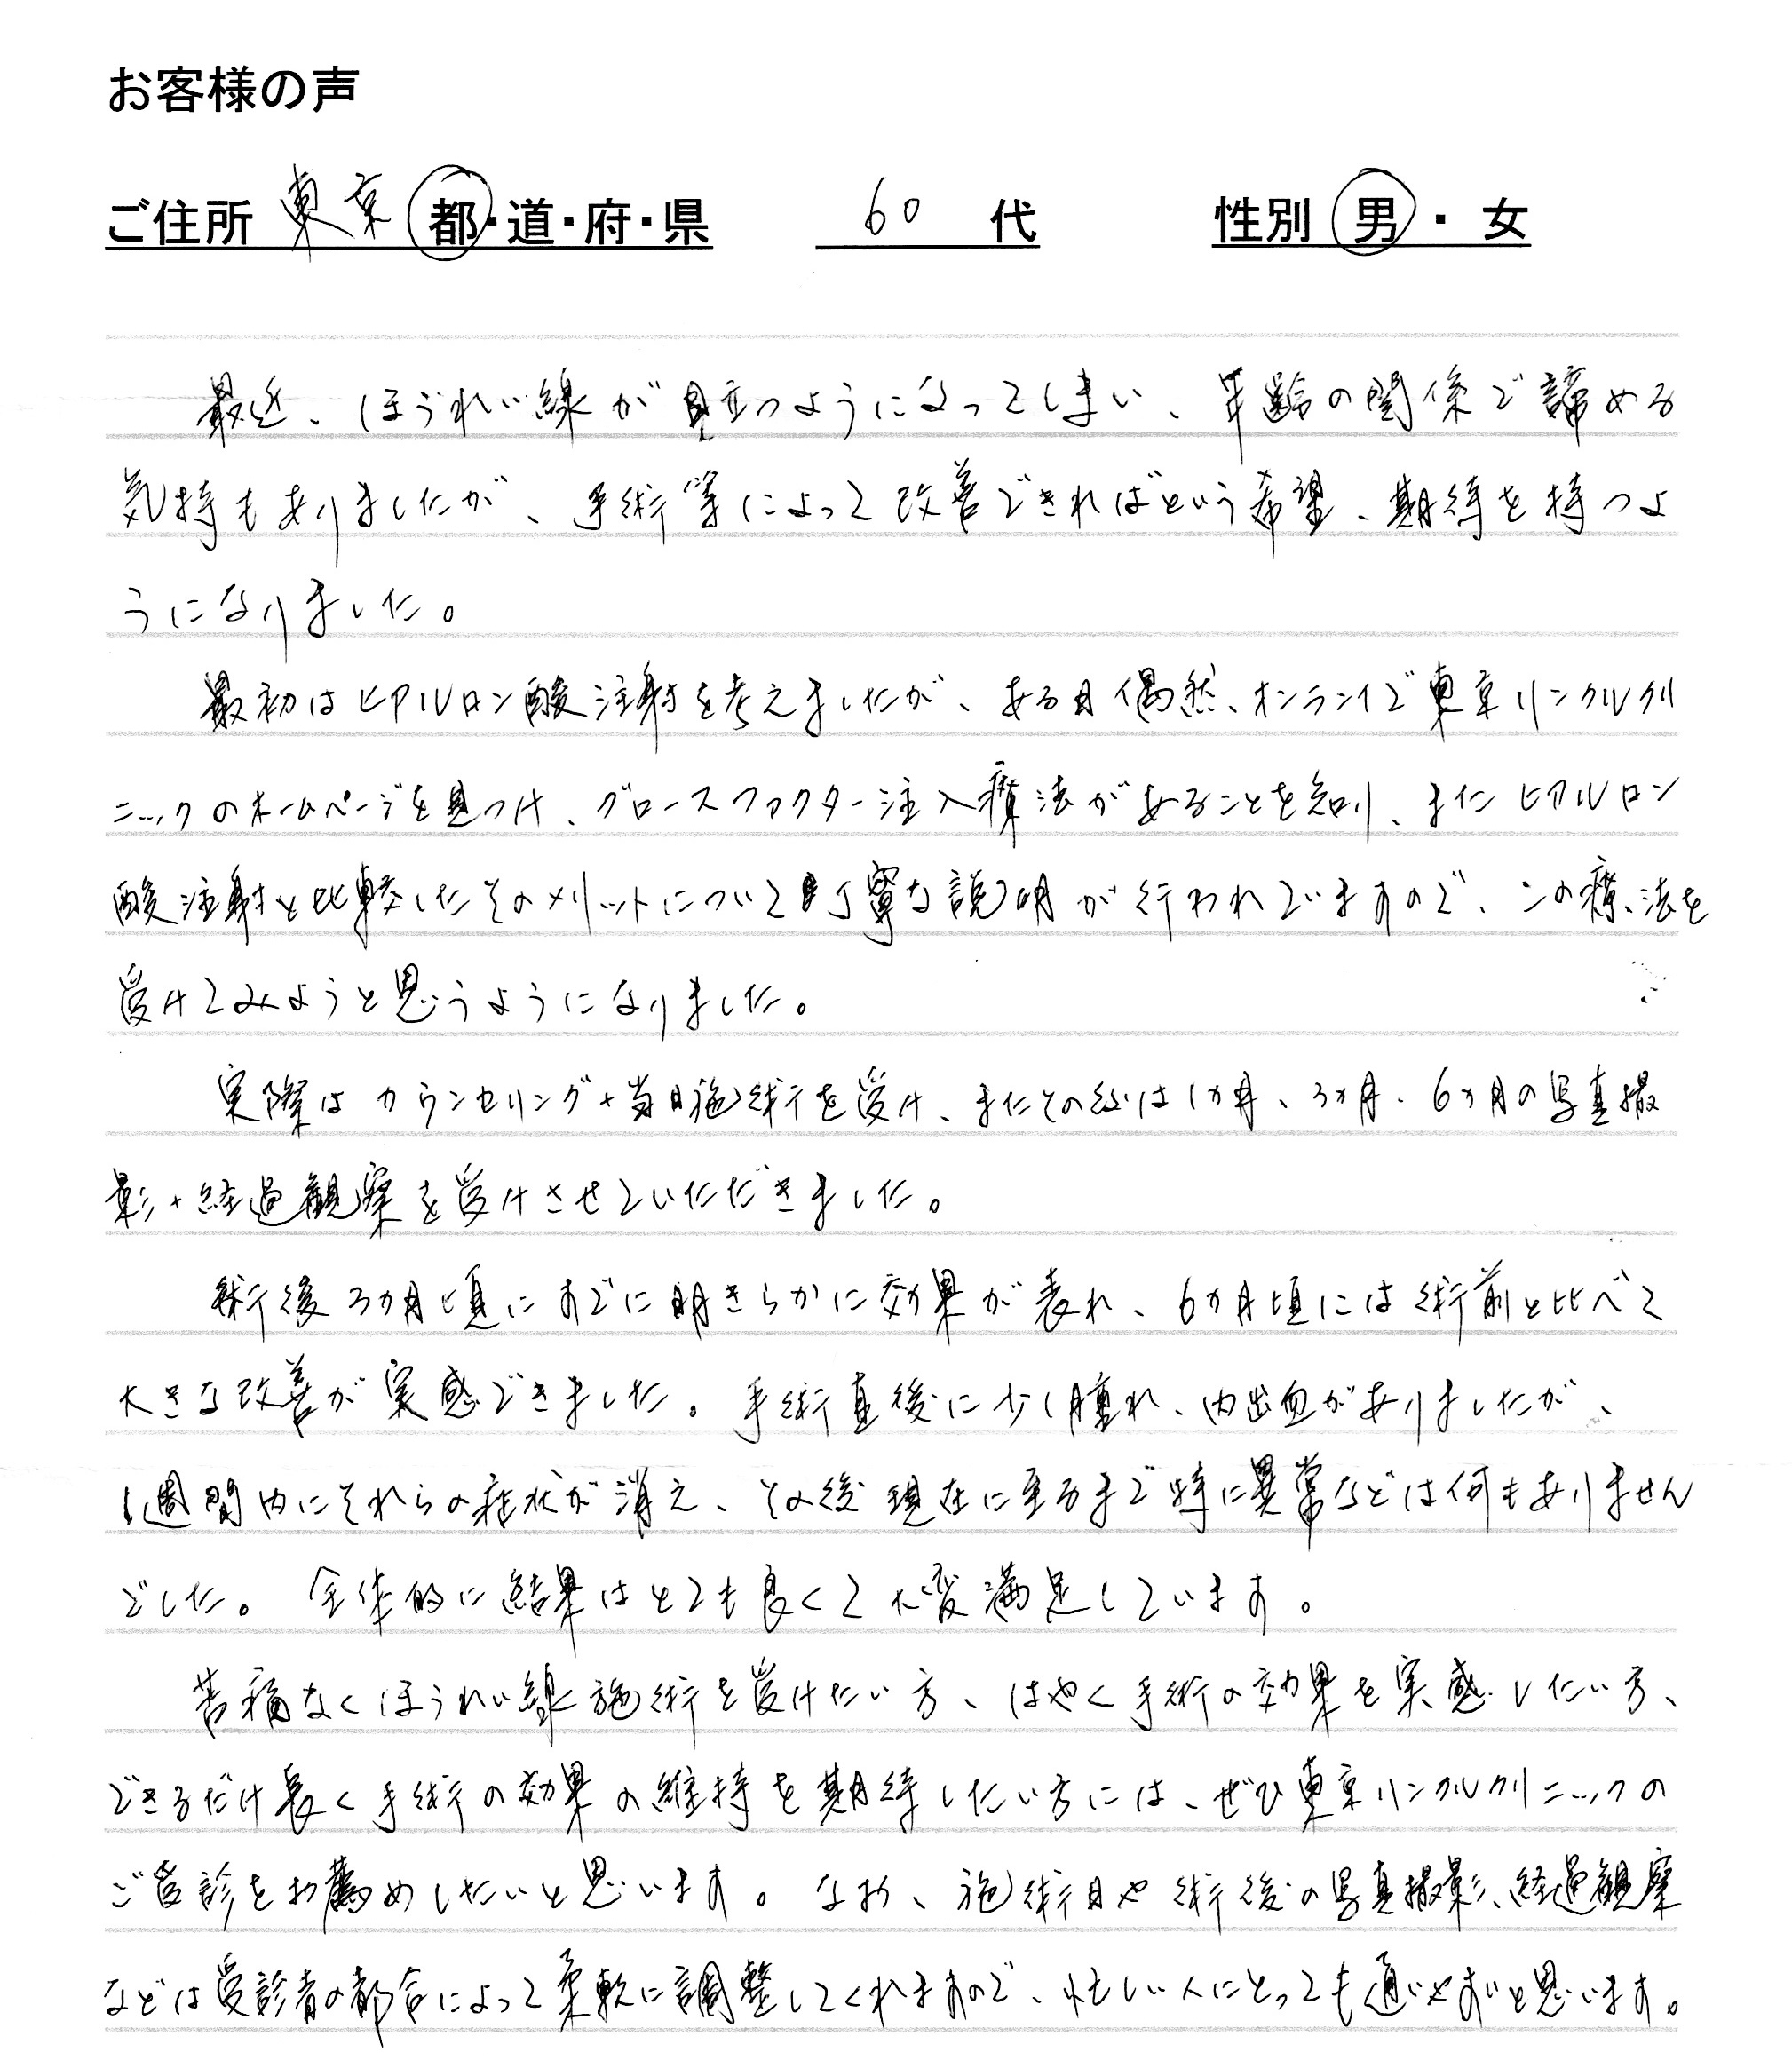 お客様の声
ご住所 東京 都・道・府・県 60 代 性別 男・女
最近、ほうれい線が目立つようになってしまい、年齢の関係で諦める
気持もありましたが、手術等によって改善できればという希望、期待を持つよ
うになりました。
最初はヒアルロン酸注射を考えましたが、ある日偶然、オンラインで東京リンクルクリ
ニックのホームページを見つけ、グロースファクター注入療法があることを知り、またヒアルロン
酸注射と比較したそのメリットについて丁寧な説明が行われていますので、この療法を
受けてみようと思うようになりました。
実際はカウンセリング+当日施術を受け、またその後は1か月、3カ月、6カ月の写真撮
影+経過観察を受けさせていただきました。
術後3カ月頃にすでに明きらかに効果が表れ、6カ月頃には術前と比べて
大きな改善が実感できました。手術直後に少し腫れ、内出血がありましたが、
1週間内にそれらの症状が消え、その後現在に至るまで特に異常などは何もありません
でした。 全体的に結果はとても良くて大変満足しています。
苦痛なくほうれい線施術を受けたい方、はやく手術の効果を実感したい方、
できるだけ長く手術の効果の維持を期待したい方には、ぜひ東京リンクルクリニックの
ご受診をお薦めしたいと思います。なお、施術日や術後の写真撮影、経過観察
などは受診者の都合によって柔軟に調整してくれますので、忙しい人にとっても通いやすいと思います。